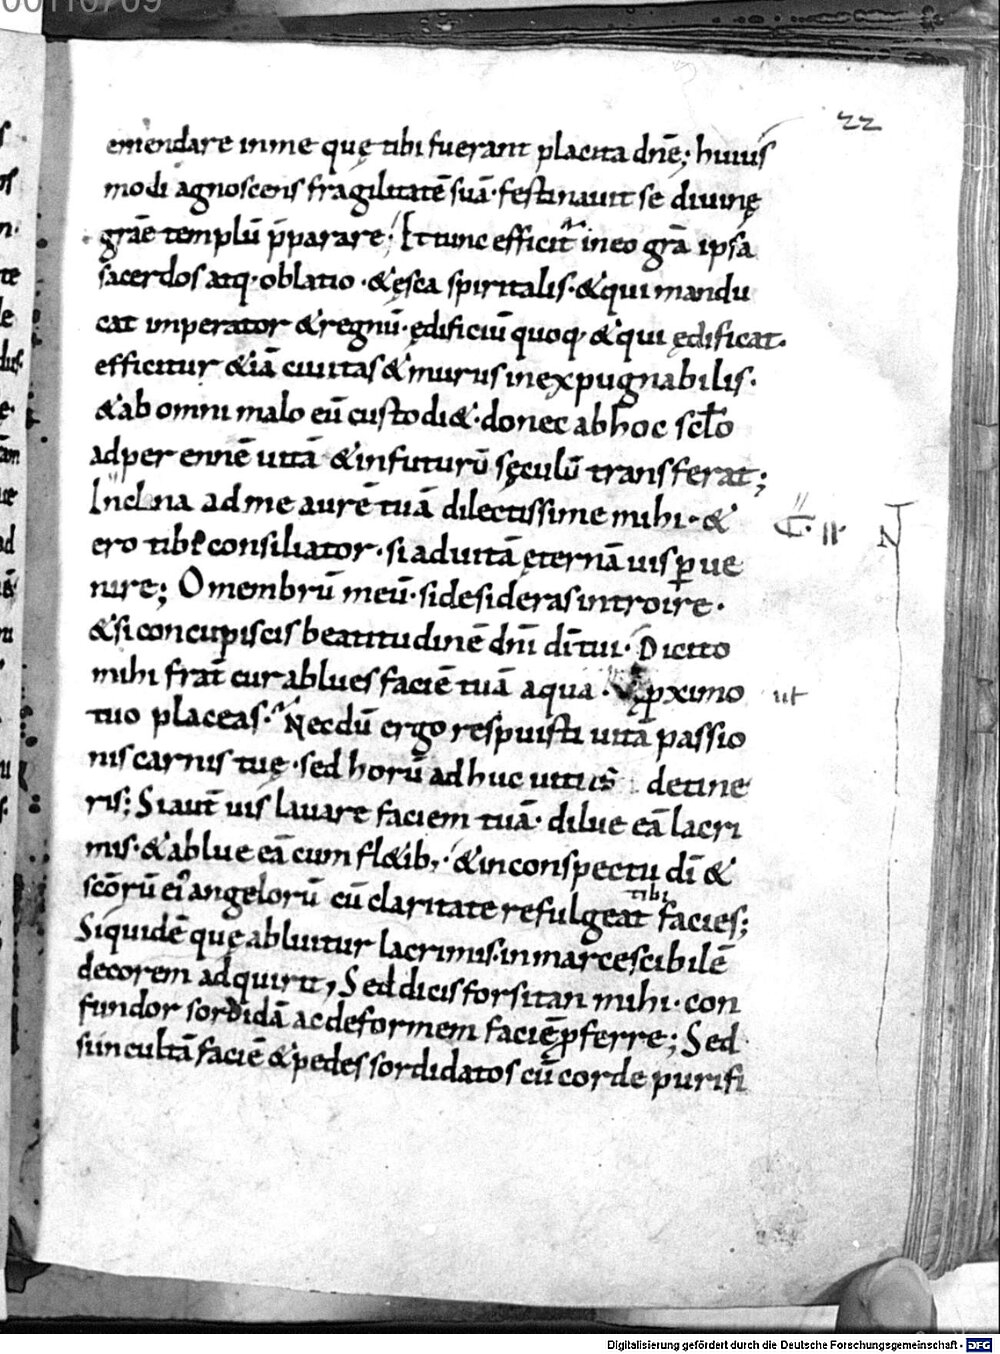 22
emendare inme quę tibi fuerant placita dnē; huius
modi agnoscens fragilitatē suā· festinauit se diuinę
grāe templū p̄parare; Et tunc efficit᷑ ineo grā ipsa
sacerdos atq· oblatio ·&ęsca spiritalis·&qui mandu
cat imperator &regnū· ędificiū quoq· &qui ędificat·
efficitur &iā ciuitas &murus inexpugnabilis·
&ab omni malo eū custodi&·donec abhoc scło
adperennē uitā &infuturū sęculū transferat;
Inclina adme aurē tuā dilectissime mihi·&
ero tibi consiliator·siaduitā ęternā uis ꝑue
nire; O membrū meū·sidesideras introire·
&siconcupiscis beatitudinē dnī dītui· Dicito
mihi frat̄ cur ablues faciē tuā aqua· ꝓximo ut
tuo placeas· Necdū ergo respuisti uitā passio
nis carnis tuę·sed horū adhuc uitiis detine
ris; Siaut̄ uis lauare faciem tuā· dilue eā lacri
mis·&ablue eā cum fl&ib;·&inconspectu dī &
scōrū ei᾽ angelorū cū claritate refulgeat tibi facies;
Siquidē quę abluitur lacrimis·inmarcescibilē
decorem adquirit, Sed dicis forsitan mihi· con
fundor sordidā acdeformem faciē ꝓferre; Sed
siincultā faciē &pedes sordidatos cū corde purifi
C·II· N